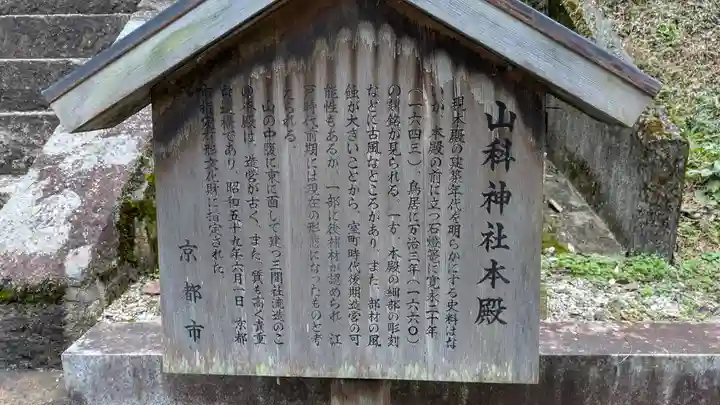 山科神社本殿
現本殿の建築年代を明らかにする史料はな
いが、本殿の前に立つ石燈籠に寛永二十年
(一六四三)、鳥居に万治三年(一六六〇)
の刻銘が見られる。一方、本殿の細部の彫刻
などに古風なところがあり、また、部材の風
蝕が大きいことから、室町時代後期造営の可
能性もあるが、一部に後補材が認められ、江
戸時代前期には現在の形態になったものと考
えられる。
山の中腹に東に面して建つ三間社流造のこ
の本殿は、造営が古く、また、質も高く貴重
な遺構であり、昭和五十九年六月一日、京都
市指定有形文化財に指定された。
京都市